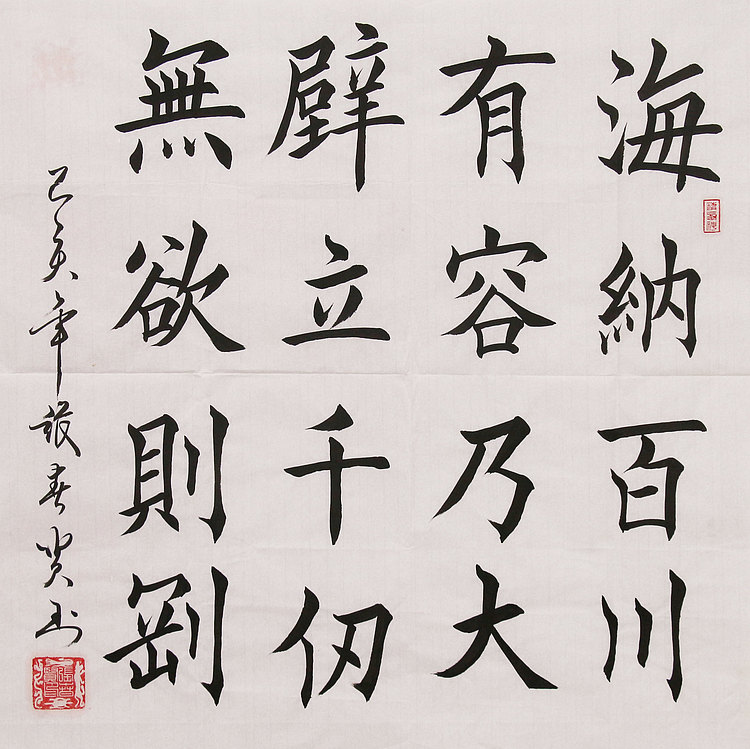 海納百川
有容乃大
壁立千仞
無欲則剛
己亥年 春贤书